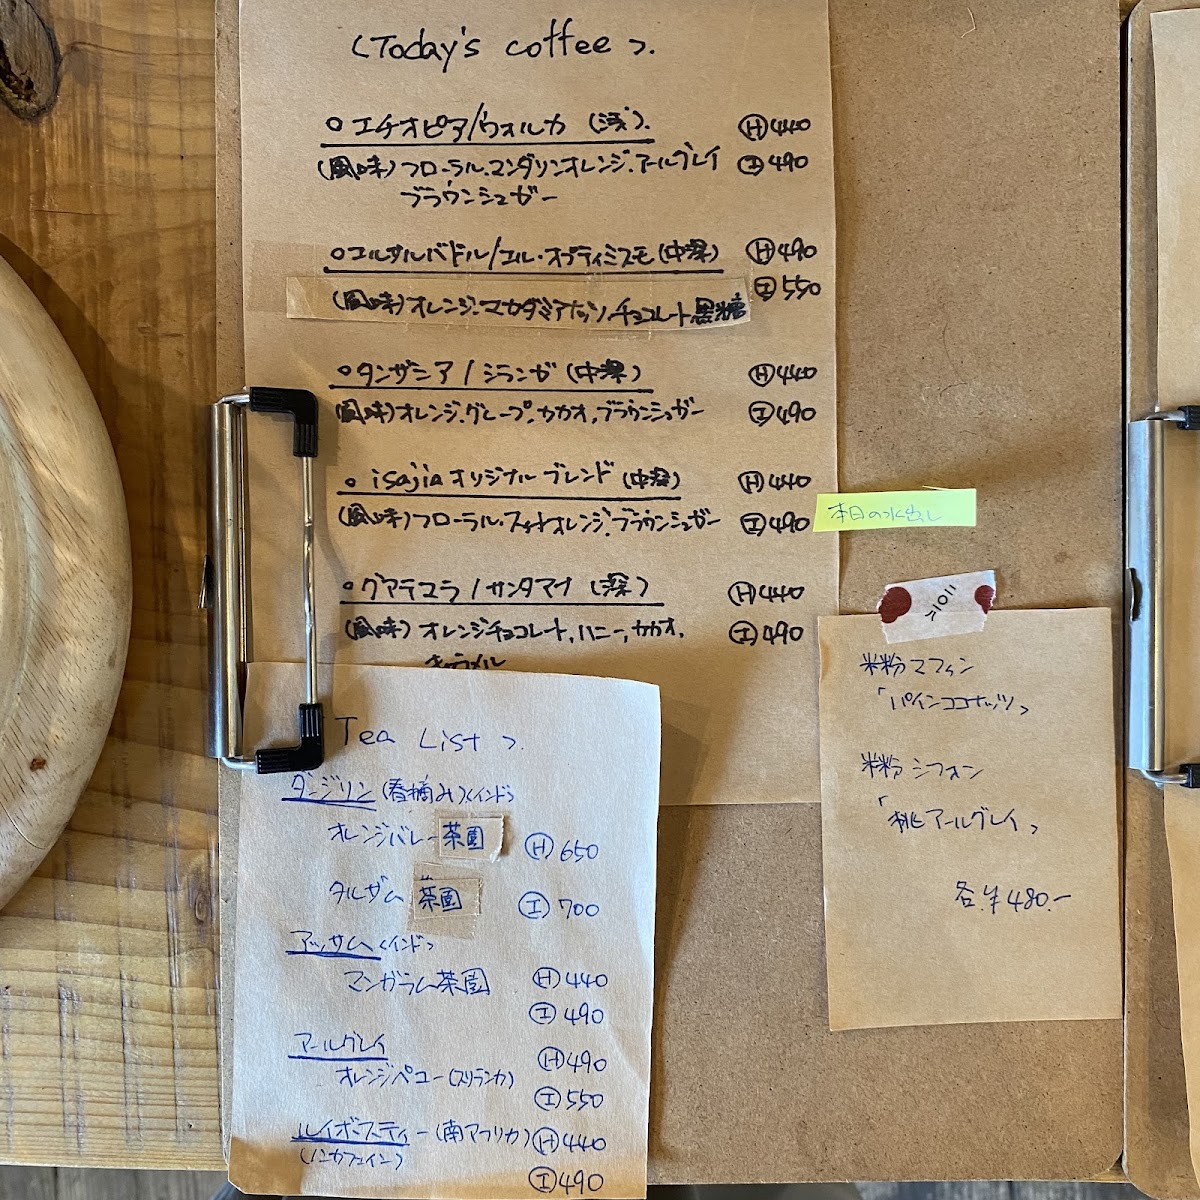 <Today's coffee>.
○エチオピア/ウォルカ (浅).
Ⓗ440
(風味)フローラル.マンダリンオレンジ.アールグレイ
Ⓘ490
ブラウンシュガー
○エルサルバドル/エル・オプティミスモ(中深)
Ⓗ490
Ⓘ550
(風味)オレンジ.マカダミアナッツ.チョコレート黒糖
○タンザニア/シランガ(中深)
Ⓗ440
(風味)オレンジ.グレープ.カカオ.ブラウンシュガー
Ⓘ490
○isajiaオリジナルブレンド(中深)
Ⓗ440
(風味)フローラル.スイートオレンジ.ブラウンシュガー
Ⓘ490
本日の水出し
○グアテマラ/サンタアナ(深)
Ⓗ440
(風味)オレンジチョコレート,ハニー,カカオ.
Ⓘ490
キャラメル
Tea List>.
ダージリン(春摘み)<インド>
オレンジバレー茶園
Ⓗ650
タルザム茶園
Ⓘ700
アッサム<インド>
マンガラム茶園
Ⓗ440
Ⓘ490
アールグレイ
Ⓗ490
オレンジペコー(スリランカ)
Ⓘ550
ルイボスティー(南アフリカ)Ⓗ440
(ノンカフェイン)
Ⓘ490
米粉マフィン
「パインココナッツ」
米粉シフォン
「桃アールグレイ」
各¥480.-